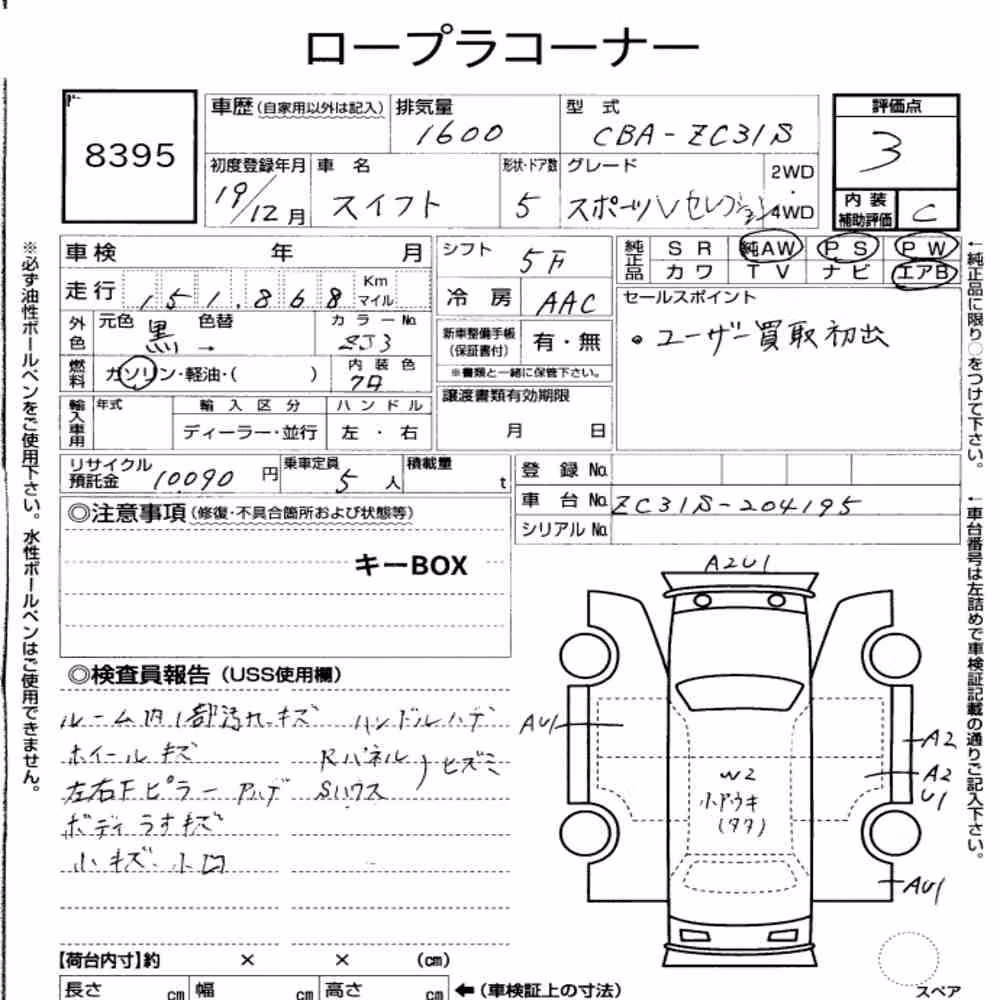 ロープラコーナー
8395
車歴(自家用以外は記入)
排気量
1600
型式
CBA-ZC31S
評価点
3
内装補助評価
C
初度登録年月
19/12月
車名
スイフト
形状・ドア数
5
グレード
スポーツVセレクション
2WD
・
4WD
車検 年 月
走行 151,868 Km マイル
外色 元色 黒 → 色替
カラーNo.
ZJ3
燃料 ガソリン・軽油・( )
内装色
クロ
輸入車用 年式
輸入区分
ディーラー・並行
ハンドル
左・右
シフト 5F
冷房 AAC
新車整備手帳(保証書付) 有・無
※書類と一緒に保管下さい。
譲渡書類有効期限
月 日
純正品 SR 純AW PS PW
カワ TV ナビ エアB
セールスポイント
・ユーザー買取初出
リサイクル預託金 10090円
乗車定員 5人
積載量 t
登録No.
車台No. ZC31S-204195
シリアルNo.
◎注意事項(修復・不具合箇所および状態等)
キーBOX
◎検査員報告(USS使用欄)
ルーム内1部汚れ・キズ ハンドルハゲ
ホイールキズ
Rパネル
Sハウス
)ヒズミ
左右Fピラー
ボディラオキズ
小キズ・小凹
A2U1
AU1
A2
A2
U1
W2
小ドウキ
(タタ)
AU1
スペア
【荷台内寸】約 × × (cm)
長さ cm 幅 cm 高さ cm ←(車検証上の寸法)
※必ず油性ボールペンをご使用下さい。水性ボールペンはご使用できません。
←純正品に限り○をつけて下さい。
←車台番号は左詰めで車検証記載の通りご記入下さい。